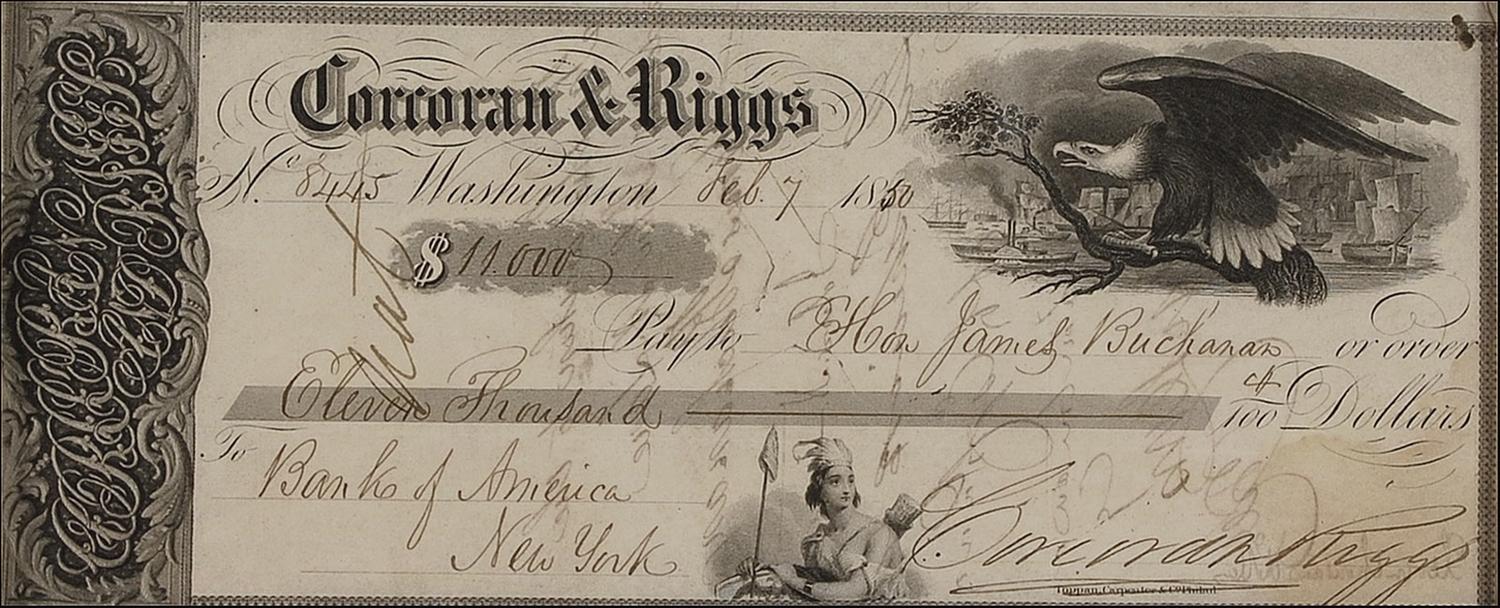 Corcoran & Riggs
No. 8445 Washington Feb. 7 1850
$ 11.000
Pay to Hon James Buchanan or order
Eleven Thousand /100 Dollars
To Bank of America
New York
Corcoran & Riggs
Toppan, Carpenter & Co. Philad.